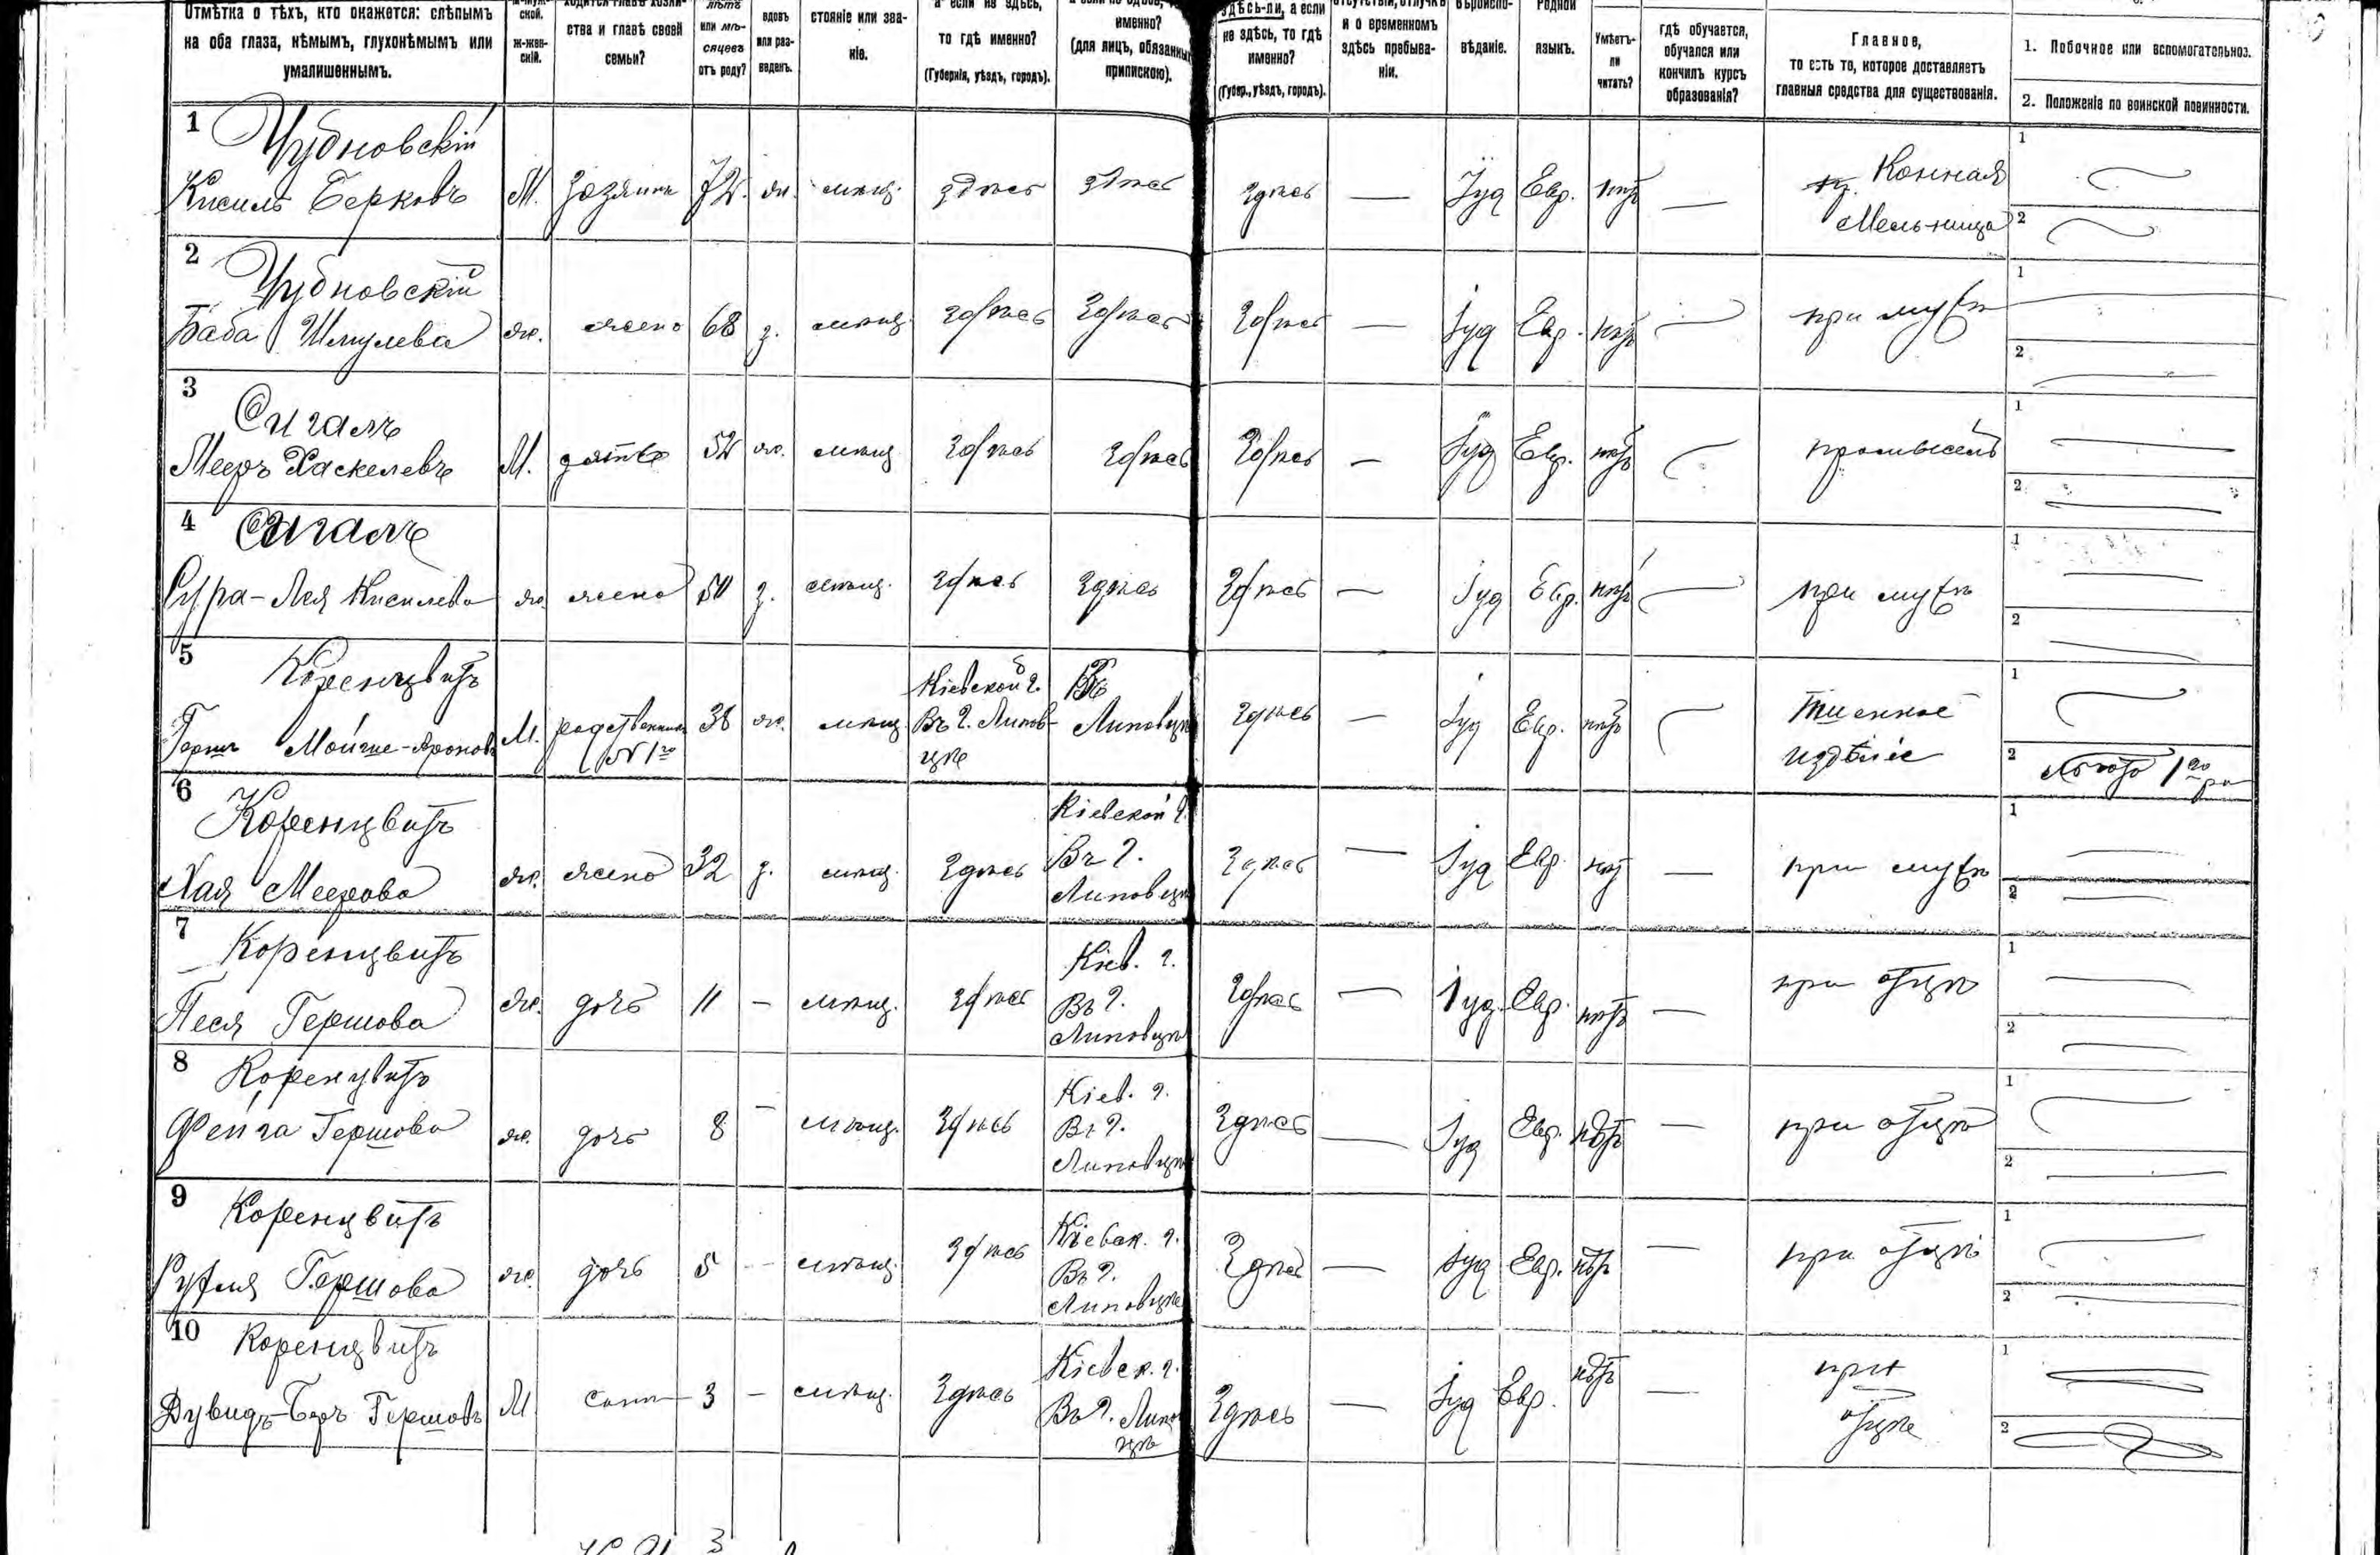 Отмѣтка о тѣхъ, кто окажется: слѣпымъ
на оба глаза, нѣмымъ, глухонѣмымъ или
умалишеннымъ.
ской.
ж-жен-
скій.
ства и главѣ своей
семьи?
или мѣ-
сяцевъ
отъ роду?
вдовъ
или раз-
веденъ.
стояніе или зва-
ніе.
а если не здѣсь,
то гдѣ именно?
(Губернія, уѣздъ, городъ).
именно?
(для лицъ, обязанныхъ
припискою).
здѣсь-ли, а если
не здѣсь, то гдѣ
именно?
(Губер., уѣздъ, городъ).
и о временномъ
здѣсь пребыва-
ніи.
вѣданіе.
Родной
языкъ.
Умѣетъ-
ли
читать?
гдѣ обучается,
обучался или
кончилъ курсъ
образованія?
Главное,
то есть то, которое доставляетъ
главныя средства для существованія.
1. Побочное или вспомогательное.
2. Положеніе по воинской повинности.
1 Чубновскій
Кисиль Берковъ М. хозяинъ 72. ж. мѣщ. здѣсь здѣсь здѣсь — Іуд Евр. нѣтъ —
Конная
Мельница
1
2
2 Чубновскій
Баба Шмулева ж. жена 68 з. мѣщ. здѣсь здѣсь здѣсь — Іуд Евр. нѣтъ — при мужѣ
1
2
3 Сигалъ
Мееръ Хаскелевъ М. зять 52 ж. мѣщ здѣсь здѣсь здѣсь — Іуд Евр. нѣтъ — промыселъ
1
2
4 Сигалъ
Сура-Лея Кисилева ж. жена 50 з. мѣщ. здѣсь здѣсь здѣсь — Іуд Евр. нѣтъ — при мужѣ
1
2
5 Коренцвитъ
Гершъ Мойше-Ароновъ М. родственникъ 38 ж. мѣщ. здѣсь — Іуд Евр. нѣтъ
№ 1го
Кіевской г.
Въ г. Липов-
цѣ
Въ
Липовцѣ
издѣліе
1
2
6 Коренцвитъ
Хая Меерова ж. жена 32 з. мѣщ. здѣсь здѣсь — Іуд Евр. нѣтъ — при мужѣ
Кіевской г.
Въ г.
Липовцѣ
1
2
7 Коренцвитъ
Песя Гершова ж. дочь 11 — мѣщ. здѣсь здѣсь — Іуд. Евр. нѣтъ — при отцѣ
Кіев. г.
Въ г.
Липовцѣ
1
2
8 Коренцвитъ
Фейга Гершова ж. дочь 8 — мѣщ. здѣсь здѣсь — Іуд Евр. нѣтъ — при отцѣ
Кіев. г.
Въ г.
Липовцѣ
1
2
9 Коренцвитъ
Рухля Гершова ж. дочь 5 — мѣщ. здѣсь здѣсь — Іуд Евр. нѣтъ — при отцѣ
Кіевск. г.
Въ г.
Липовцѣ
1
2
10 Коренцвитъ
Дувидъ-Беръ Гершовъ М сынъ 3 — мѣщ. здѣсь здѣсь — Іуд Евр. нѣтъ — при
отцѣ
Кіевск. г.
Въ г. Липов
цѣ
1
2